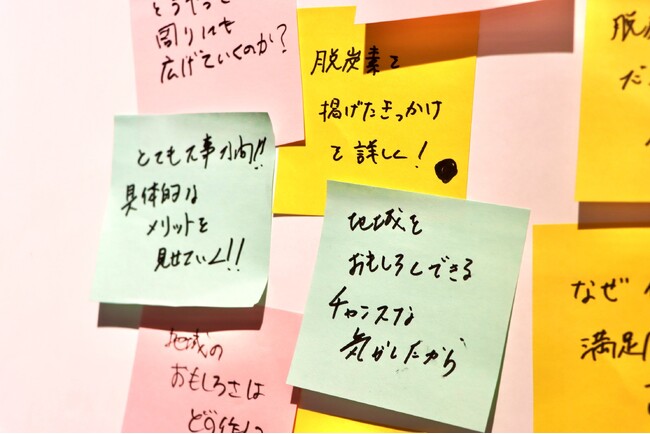 どうやって
周りにも
広げていくのか?
脱炭素を
掲げたきっかけ
を詳しく!
とても大事な向!!
具体的な
メリットを
見せていく!!
地域を
おもしろくできる
チャンスな
気がしたから
地域の
おもしろさは
どう作
脱
だ
なぜ
満足